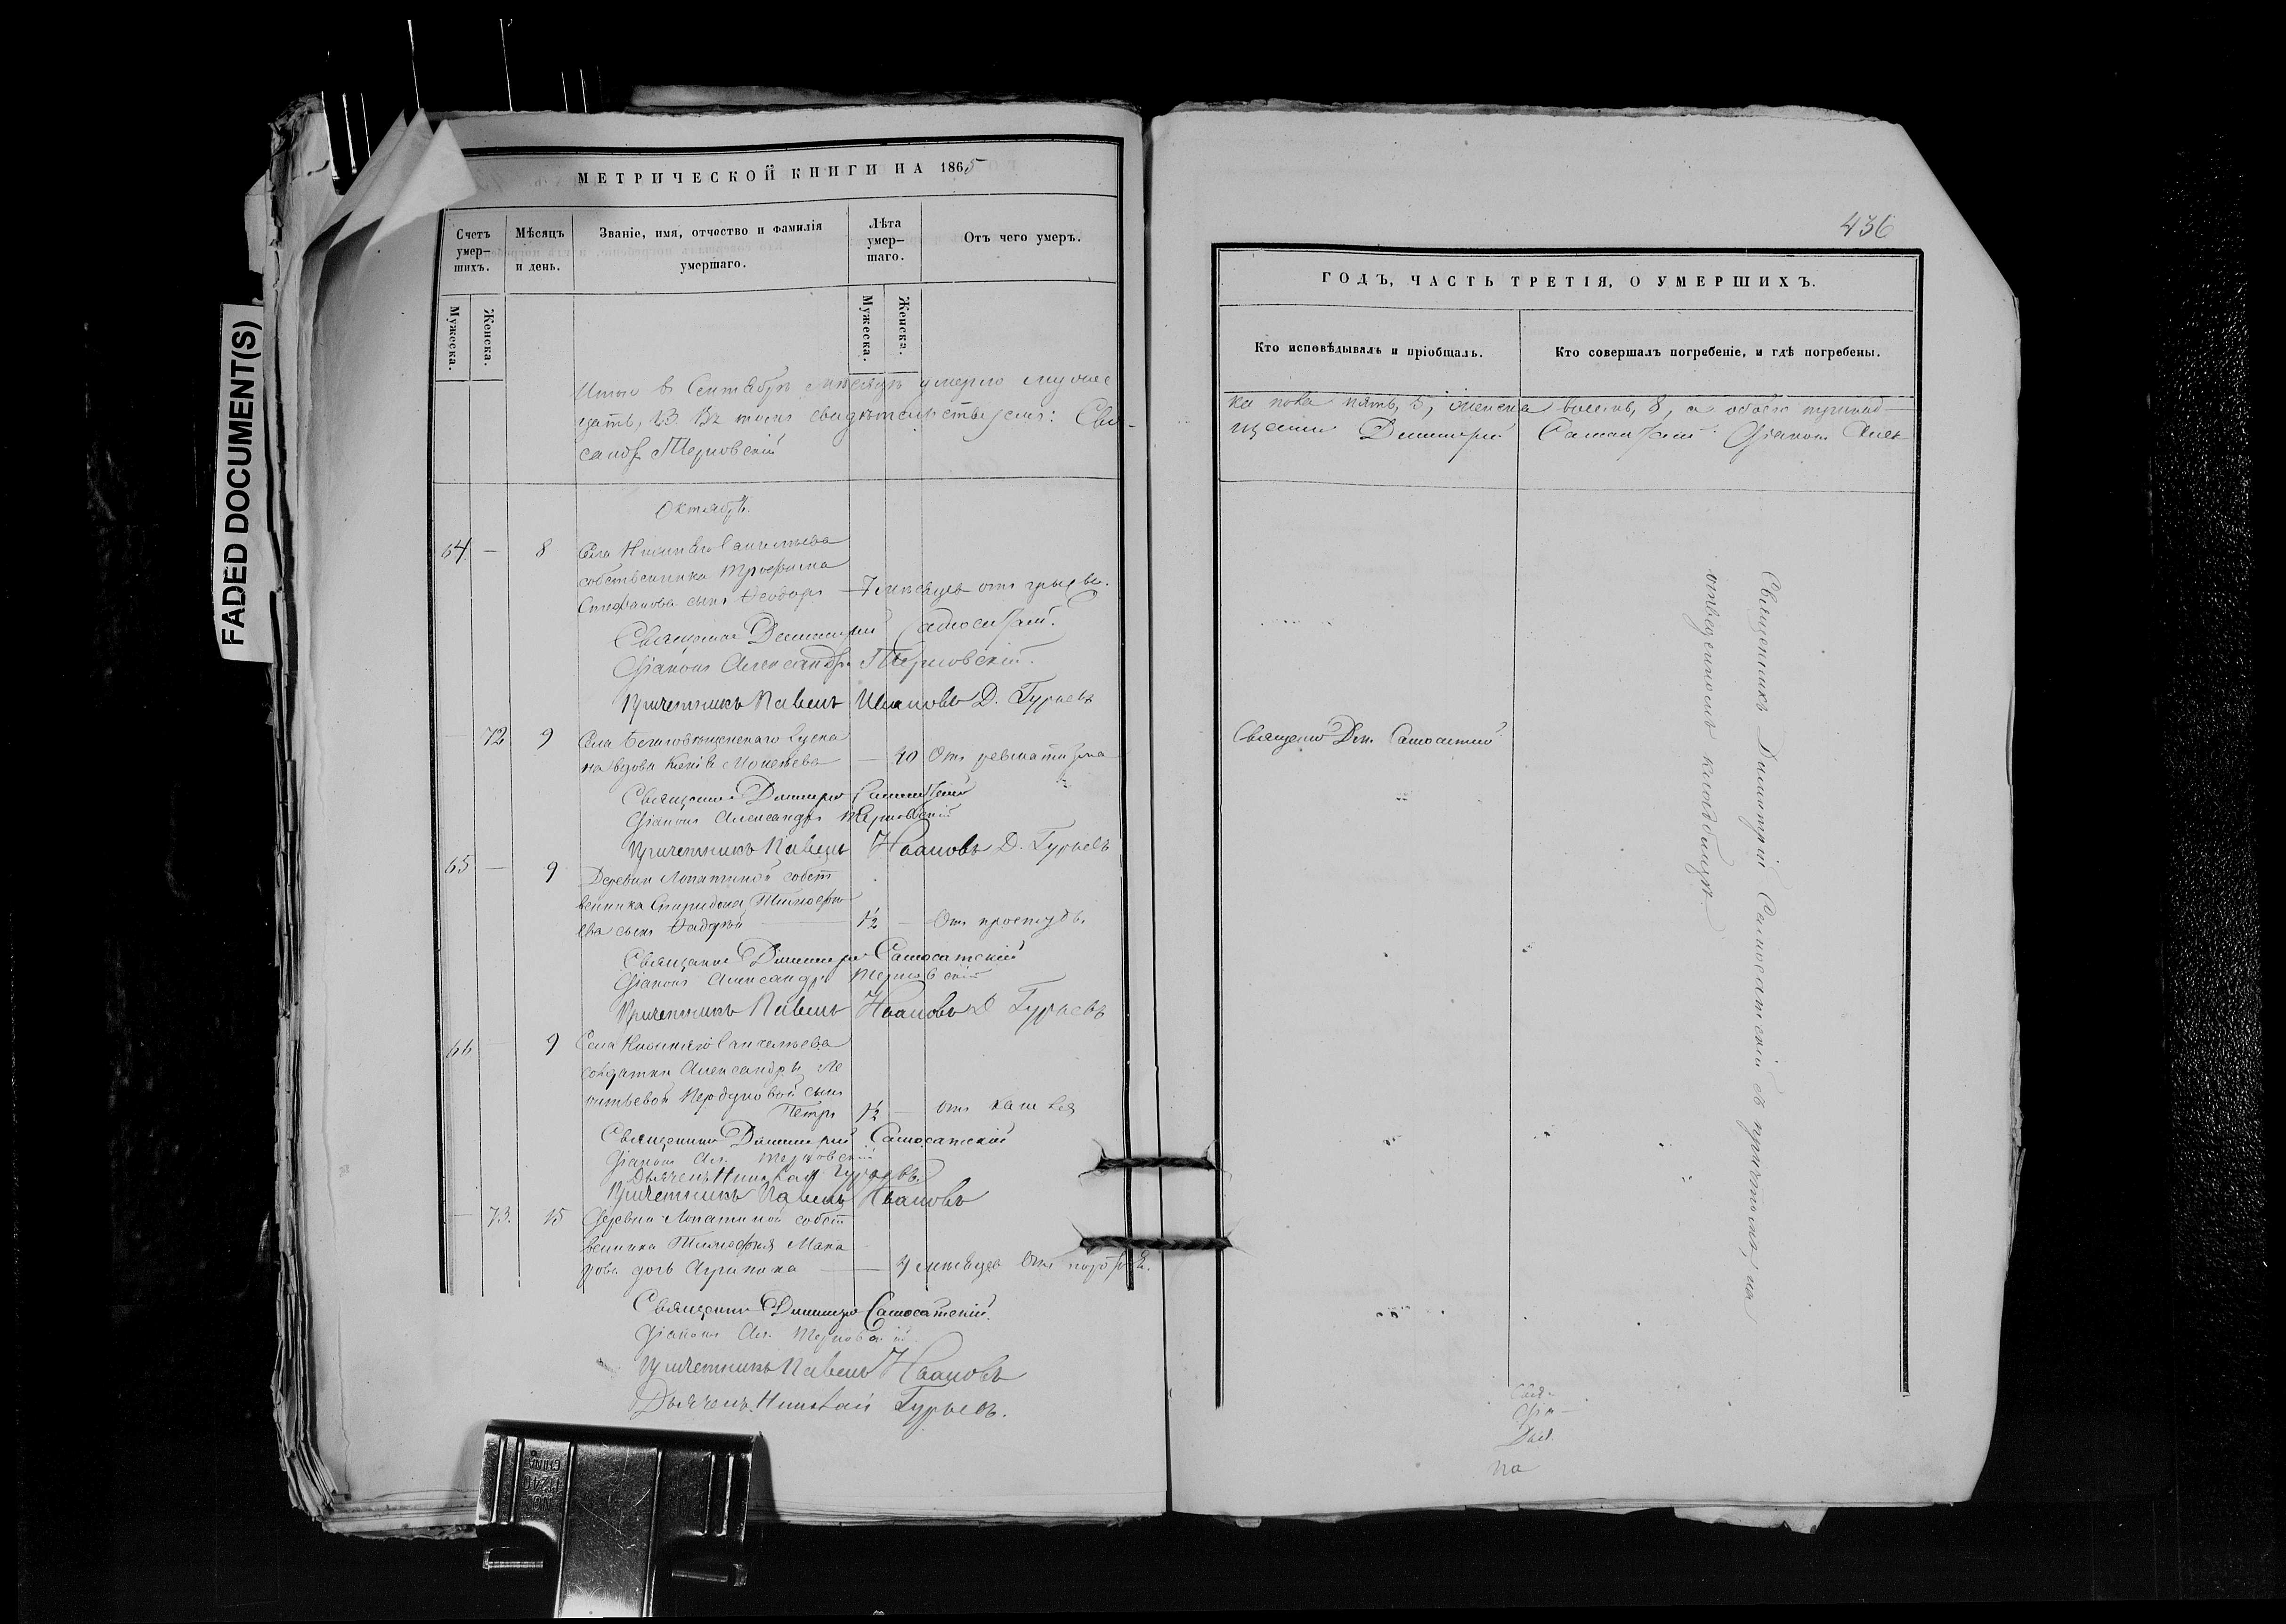 FADED DOCUMENT(S)
МЕТРИЧЕСКОЙ КНИГИ НА 1865
Счетъ умер-шихъ.
Мѣсяцъ и день.
Званіе, имя, отчество и фамилія умершаго.
Лѣта умер-шаго.
Отъ чего умеръ.
Мужеска.
Женска.
Мужеска.
Женска.
Итого въ Сентябрѣ мѣсяцѣ умерло мужес
цать, 13. Въ томъ свидѣтельствуемъ: Свя-
сандръ Терновскій
Октябрь.
64. — 8 Села Нижняго
собственника Трофима
Стефанова сынъ Ѳеодоръ — 7 мѣсяцев отъ грыжи.
Священникъ Димитрій Самосатскій.
Діаконъ Александръ Терновскій.
Причетникъ Павелъ Ивановъ Д. Гурьевъ
— 72 9 Села Благовѣщенскаго
на вдова — 40 Отъ ревматизма
Священникъ Димитрій Самосатскій
Діаконъ Александръ Терновскій
Причетникъ Павелъ Ивановъ Д. Гурьевъ
65 — 9 Деревни Лопатиной собст
венника Спиридона Тимофѣе
ва сынъ Фаддей — 1/2 — Отъ простуды.
Священникъ Димитрій Самосатскій
Діаконъ Александръ Терновскій
Причетникъ Павелъ Ивановъ Д Гурьевъ
66 — 9 Села Нижняго
солдатки Александры Ле
онтьевой сынъ
Петръ 1/2 — отъ кашля
Священникъ Димитрій Самосатскій
Діаконъ Ал. Терновскій
Дьячекъ Николай Гурьевъ.
Причетникъ Павелъ Ивановъ
— 73. 15 Деревни Лопатиной собст
венника Тимофея Мака
рова дочь — 4 мѣсяцев Отъ
Священникъ Димитрій Самосатскій.
Діаконъ Ал. Терновскій.
Причетникъ Павелъ Ивановъ
Дьячекъ Николай Гурьевъ.
436
ГОДЪ, ЧАСТЬ ТРЕТІЯ, О УМЕРШИХЪ.
Кто исповѣдывалъ и пріобщалъ.
Кто совершалъ погребеніе, и гдѣ погребены.
ка пола пять, 5, женска восемь, 8, а обоего тринад-
щенникъ Димитрій Самосатскій Діаконъ Алек-
Священникъ Дим. Самосатскій
Священникъ Димитрій Самосатскій съ причтомъ, на
отведенномъ кладбищѣ.
Свя-
Діа-
Дья
па